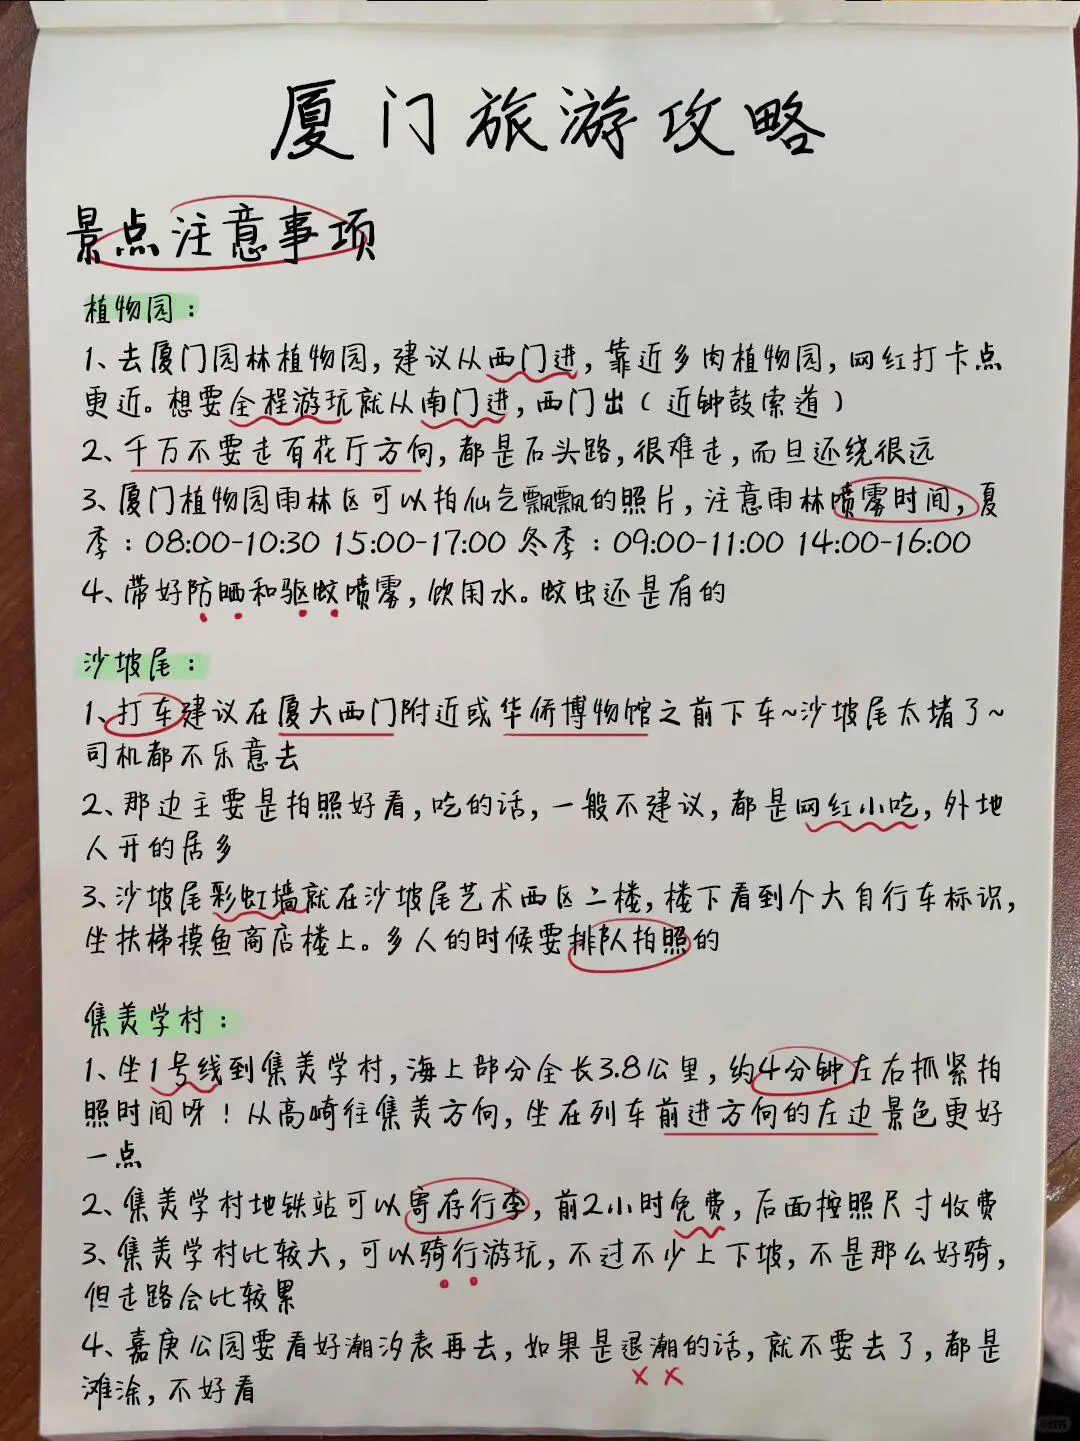 厦门旅游攻略
景点注意事项
植物园：
1、去厦门园林植物园，建议从西门进，靠近多肉植物园，网红打卡点
更近。想要全程游玩就从南门进，西门出（近钟鼓索道）
2、千万不要走百花厅方向，都是石头路，很难走，而且还绕很远
3、厦门植物园雨林区可以拍仙气飘飘的照片，注意雨林喷雾时间，夏
季：08:00-10:30 15:00-17:00 冬季：09:00-11:00 14:00-16:00
4、带好防晒和驱蚊喷雾，饮用水。蚊虫还是有的
沙坡尾：
1、打车建议在厦大西门附近或华侨博物馆之前下车~沙坡尾太堵了~
司机都不乐意去
2、那边主要是拍照好看，吃的话，一般不建议，都是网红小吃，外地
人开的居多
3、沙坡尾彩虹墙就在沙坡尾艺术西区二楼，楼下看到个大自行车标识，
坐扶梯摸鱼商店楼上。多人的时候要排队拍照的
集美学村：
1、坐1号线到集美学村，海上部分全长3.8公里，约4分钟左右抓紧拍
照时间呀！从高崎往集美方向，坐在列车前进方向的左边景色更好
一点
2、集美学村地铁站可以寄存行李，前2小时免费，后面按照尺寸收费
3、集美学村比较大，可以骑行游玩，不过不少上下坡，不是那么好骑，
但走路会比较累
4、嘉庚公园要看好潮汐表再去，如果是退潮的话，就不要去了，都是
滩涂，不好看